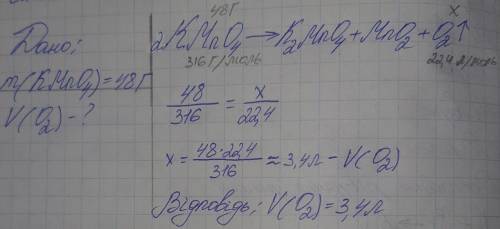 Дано:
m(KMnO₄)=48г
V(O₂)-?
48г x
2KMnO₄ → K₂MnO₄ + MnO₂ + O₂↑
316г/моль 22,4л/моль
48/316 = x/22,4
x = 48·22,4/316 ≈ 3,4л - V(O₂)
Відповідь: V(O₂)=3,4л